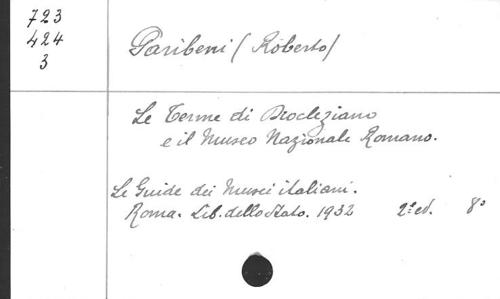 723
424
3
Paribeni (Roberto)
Le Terme di Diocleziano
e il Museo Nazionale Romano.
Le Guide dei Musei italiani.
Roma. Lib. dello Stato. 1932 2ª ed. 8º